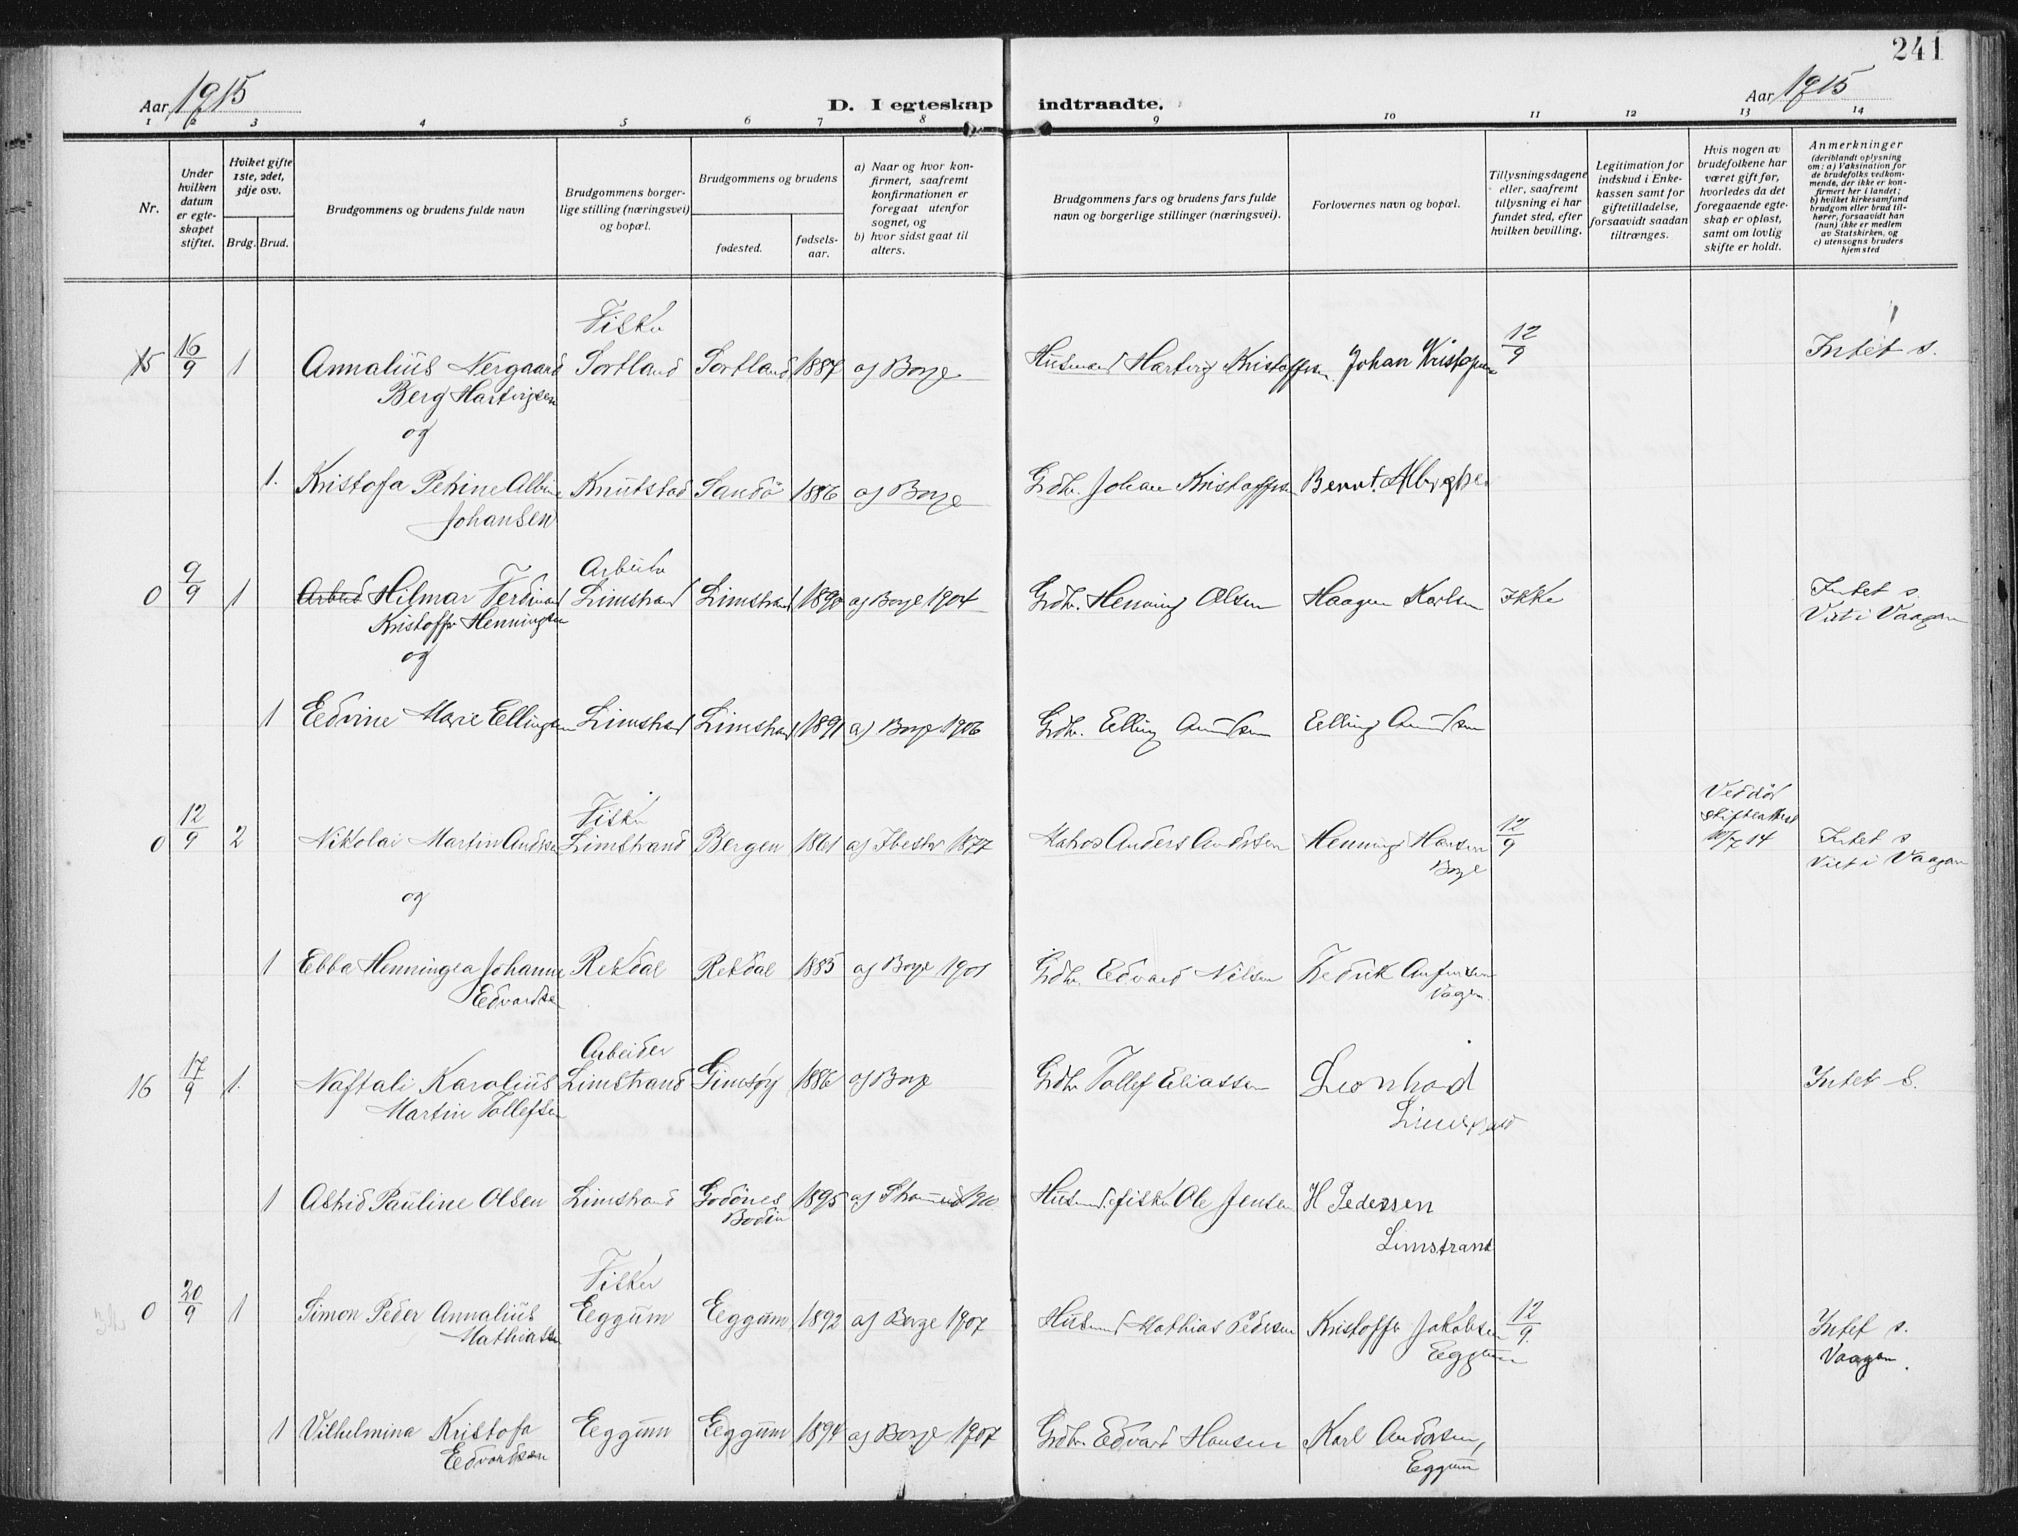 241
Aar 1915
D. I egteskap indtraadte.
Aar 1915
1 2 3 4 5 6 7 8 9 10 11 12 13 14
Nr.
Under hvilken datum er egteskapet stiftet.
Hviket gifte 1ste, 2det, 3dje osv.
Brdg. Brud.
Brudgommens og brudens fulde navn
Brudgommens borgerlige stilling (næringsvei) og bopæl.
Brudgommens og brudens
fødested.
fødselsaar.
a) Naar og hvor konfirmert, saafremt konfirmationen er foregaat utenfor sognet, og
b) hvor sidst gaat til alters.
Brudgommens fars og brudens fars fulde navn og borgerlige stillinger (næringsvei).
Forlovernes navn og bopæl.
Tillysningsdagene eller, saafremt tillysning ei har fundet sted, efter hvilken bevilling.
Legitimation for indskud i Enkekassen samt for giftetilladelse, forsaavidt saadan tiltrænges.
Hvis nogen av brudefolkene har været gift før, hvorledes da det foregaaende egteskap er opløst, samt om lovlig skifte er holdt.
Anmerkninger
(deriblandt oplysning om: a) Vaksination for de brudefolks vedkommende, der ikke er konfirmert her i landet; b) hvilket kirkesamfund brudgom eller brud tilhører, forsaavidt han (hun) ikke er medlem av Statskirken, og c) utensogns bruders hjemsted
Fisker
15 16/9 1 Annaliüs Nergaard Sortland Sortland 1887 a) Borge Husmand Hartvig Kristoffersen Johan Kristoffersen 12/9 Intet s.
Berg Hartvigsen
og
1. Kristofa Petrine Albine Knutstad Sandö 1886 a) Borge Grdbr. Johan Kristoffersen Bernt
Johansen
Arbeider
0 9/9 1 Arbeid Hilmar Ferdinand Limstrand Limstrand 1890 a) Borge 1904 Grdbr. Henning Olsen Haagen Karlsen Ikke Intet s.
Kristoffer Henningsen Viet i Vaagan
og
1 Edvine Marie Ellingsen Limstrand Limstrand 1891 a) Borge 1906 Grdbr. Elling Amundsen Elling Amundsen
Fisker
0 12/9 2 Nikolai Martin Andersen Limstrand Bergen 1861 a) Ibestad 1877 Matros Anders Andersen Henning Hansen Borge 12/9 Veddöd skifteattest 10/7 14 Intet s
Viet i Vaagan
og
1 Ebba Henningea Johanne Rekdal Rekdal 1885 a) Borge 1901 Grdbr. Edvard Nilsen Fedrik Anfinsen
Edvardsen Vaagan
Arbeider
16 17/9 1. Naftali Karoliüs Limstrand Gimsöy 1886 a) Borge Grdbr Tollef Eliassen Leonhard Intet s.
Martin Tollefsen Limstrand
1 Astrid Pauline Olsen Limstrand Godönes Bodin 1895 a) 1910 Husmd. fisker Ole Jensen H Pederssen
Limstrand
Fisker
0 20/9 1 Simon Peder Annaliüs Eggum Eggum 1892 a) Borge 1907 Husmand Mathias Pedersen Kristoffer Jakobsen 12/9. Intet s.
Mathiassen Eggum Vaagan.
1 Vilhelmina Kristofa Eggum Eggum 1894 a) Borge 1907 Grdbr Edvard Hansen Karl Andersen,
Edvardsen Eggum